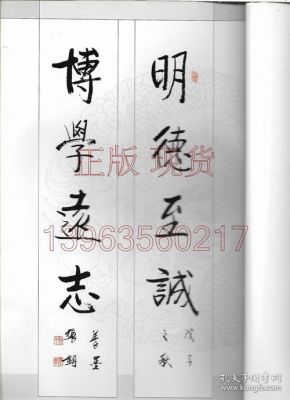 明德至誠
戊子
之秋
博學遠志
養墨
張錫
正版 现货
13963560217
孔夫子旧书网